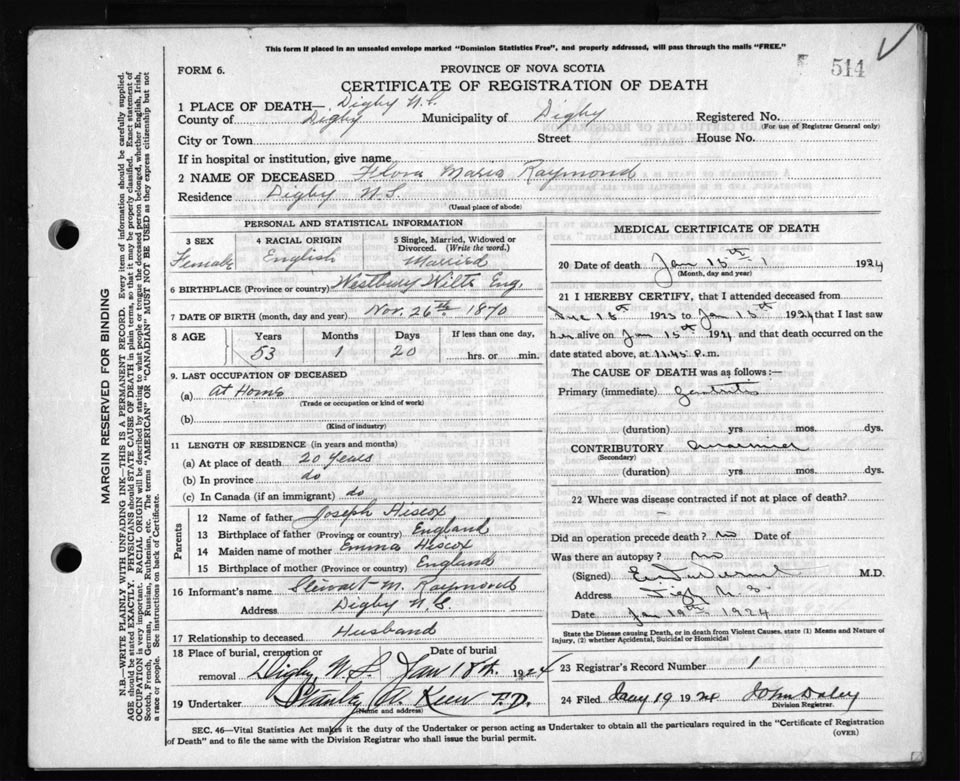 This form if placed in an unsealed envelope marked "Dominion Statistics Free", and properly addressed, will pass through the mails "FREE."
514
FORM 6.
PROVINCE OF NOVA SCOTIA
CERTIFICATE OF REGISTRATION OF DEATH
1 PLACE OF DEATH— Digby N.S.
County of Digby Municipality of Digby Registered No.
(For use of Registrar General only)
City or Town Street House No.
If in hospital or institution, give name
2 NAME OF DECEASED Flora Maria Raymond
Residence Digby N.S.
(Usual place of abode)
MARGIN RESERVED FOR BINDING
N.B.—WRITE PLAINLY WITH UNFADING INK—THIS IS A PERMANENT RECORD. Every item of information should be carefully supplied.
AGE should be stated EXACTLY. PHYSICIANS should STATE CAUSE OF DEATH in plain terms, so that it may be properly classified. Exact statement of
OCCUPATION is very important. RACIAL ORIGIN will be described by stating to what people or tongue the deceased person belonged, whether English, Irish,
Scotch, French, German, Russian, Ruthenian, etc. The terms "AMERICAN" OR "CANADIAN" MUST NOT BE USED as they express citizenship but not
a race or people. See instructions on back of Certificate.
PERSONAL AND STATISTICAL INFORMATION
3 SEX 4 RACIAL ORIGIN 5 Single, Married, Widowed or
Divorced. (Write the word.)
Female English Married
6 BIRTHPLACE (Province or country) Westbury Wilts Eng.
7 DATE OF BIRTH (month, day and year) Nov. 26th 1870
8 AGE Years Months Days If less than one day,
53 1 20 hrs. or min.
9. LAST OCCUPATION OF DECEASED
(a) At Home
(Trade or occupation or kind of work)
(b)
(Kind of industry)
11 LENGTH OF RESIDENCE (in years and months)
(a) At place of death 20 Years
(b) In province do
(c) In Canada (if an immigrant) do
Parents
12 Name of father Joseph Hiscox
13 Birthplace of father (Province or country) England
14 Maiden name of mother Emma Hiscox
15 Birthplace of mother (Province or country) England
16 Informant's name Stewart M. Raymond
Address Digby N.S.
17 Relationship to deceased Husband
18 Place of burial, cremation or Date of burial
removal Digby, N.S. Jan 18th 1924
19 Undertaker Stanley A.
(Name and address)
MEDICAL CERTIFICATE OF DEATH
20 Date of death Jan 15th 1924
(Month, day and year)
21 I HEREBY CERTIFY, that I attended deceased from
1923 to Jan 15th 1924 that I last saw
her alive on Jan 15th 1924, and that death occurred on the
date stated above, at 11.45 P.m.
The CAUSE OF DEATH was as follows:—
Primary (immediate)
(duration) yrs. mos. dys.
CONTRIBUTORY
(Secondary)
(duration) yrs. mos. dys.
22 Where was disease contracted if not at place of death?
—
Did an operation precede death? no Date of
Was there an autopsy? no
(Signed) M.D.
Address Digby N.S.
Date Jan 19th 1924
State the Disease causing Death, or in death from Violent Causes, state (1) Means and Nature of
Injury, (2) whether Accidental, Suicidal or Homicidal
23 Registrar's Record Number 1
24 Filed Jany 19 1924 John Daley
Division Registrar.
SEC. 46—Vital Statistics Act makes it the duty of the Undertaker or person acting as Undertaker to obtain all the particulars required in the "Certificate of Registration
of Death" and to file the same with the Division Registrar who shall issue the burial permit.
(OVER)